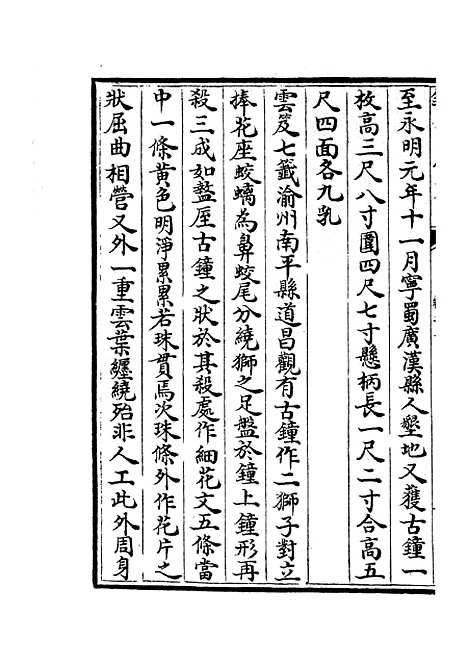 至永明元年十一月寧蜀廣漢縣人墾地又獲古鐘一
枚高三尺八寸圍四尺七寸懸柄長一尺二寸合高五
尺四面各九乳
雲笈七籤渝州南平縣道昌觀有古鐘作二獅子對立
捧花座蛟螭為鼻蛟尾分繞獅之足盤於鐘上鐘形再
殺三成如盩厔古鐘之狀於其殺處作細花文五條當
中一條黄色明淨累累若珠貫焉次珠條外作花片之
狀屈曲相營又外一重雲葉纒繞殆非人工此外周身